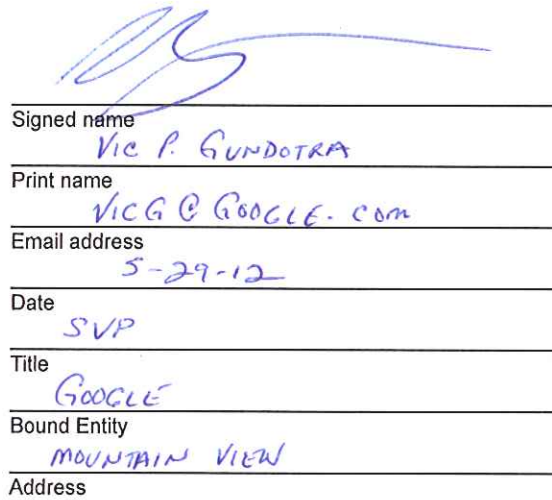 Signed name
Vic P. GUNDOTRA
Print name
VICG @ GOOGLE. com
Email address
5-29-12
Date
SVP
Title
GOOGLE
Bound Entity
MOUNTAIN VIEW
Address